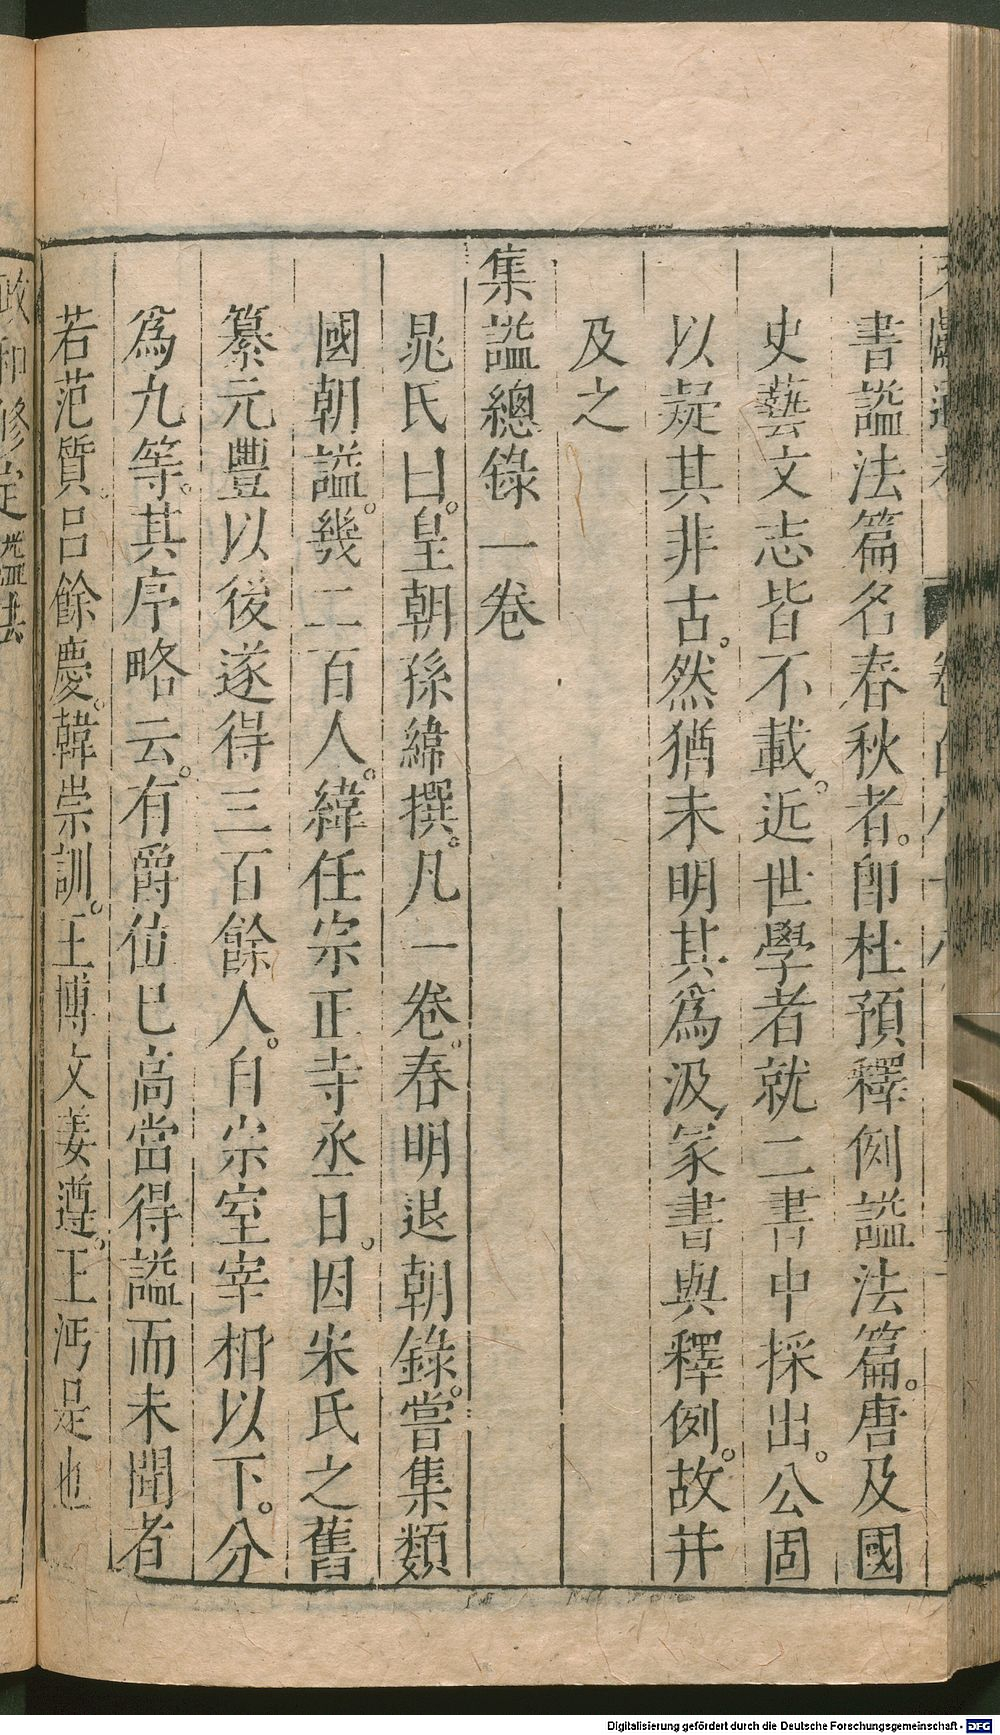 書謚法篇名春秋者。卽杜預釋例謚法篇。唐及國
史藝文志皆不載。近世學者就二書中採出。公固
以疑其非古。然猶未明其爲汲冢書與釋例。故并
及之
集謚總錄一卷
晁氏曰。皇朝孫緯撰。凡一卷。春明退朝錄。嘗集類
國朝謚。幾二百人。緯任宗正寺丞日。因宋氏之舊
纂元豐以後遂得三百餘人。自宗室宰相以下。分
爲九等。其序略云。有爵位已高當得謚而未聞者
若范質。呂餘慶。韓崇訓。王博文姜遵。王沔是也
政和修定謚法
Digitalisierung gefördert durch die Deutsche Forschungsgemeinschaft - DFG